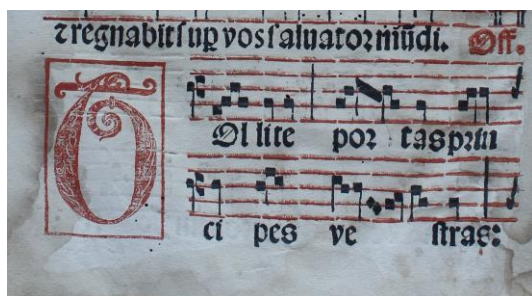 ⁊ regnabit sup vos saluator mūdi. Off.
TOllite por tas prin
ci pes ve stras: